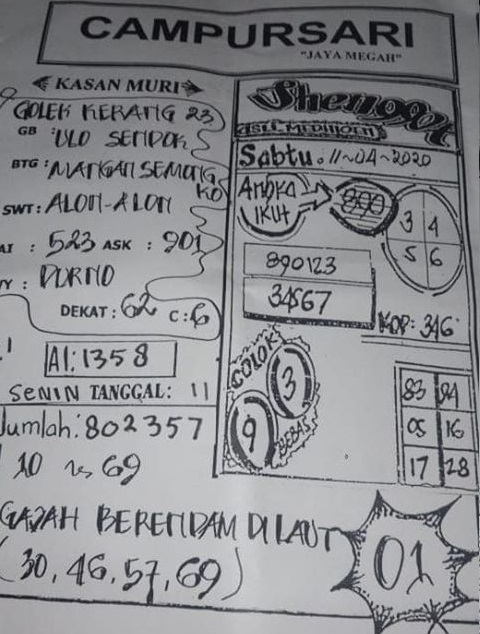 CAMPURSARI
"JAYA MEGAH"
KASAN MURI
GOLEK KERANG 23
GB : ULO SENDOK
BTG : MANGAN SEMONG
KO
SWT : ALON-ALON
AI : 523 ASK : 901
Y : PORNO
DEKAT : 62 C : 6
AI : 1358
SENIN TANGGAL : 11
Jumlah : 802357
10 69
GAJAH BERENDAM DI LAUT
(30, 46, 57, 69)
ASLI
Sabtu . 11-04-2020
ANGKA
IKUT
890
3 4
5 6
890123
34567
KOP: 346
COLOK
3
9
BEBAS
83 94
05 16
17 28
01